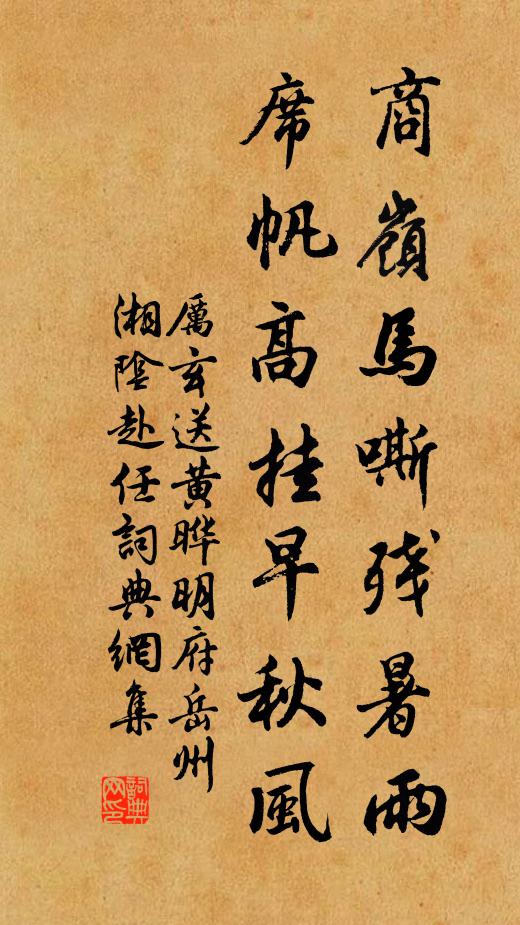 商嶺馬嘶残暑雨
席帆高挂早秋風
厲玄送黄晔明府岳州
湘陰赴任詞典網集
詞典
网印